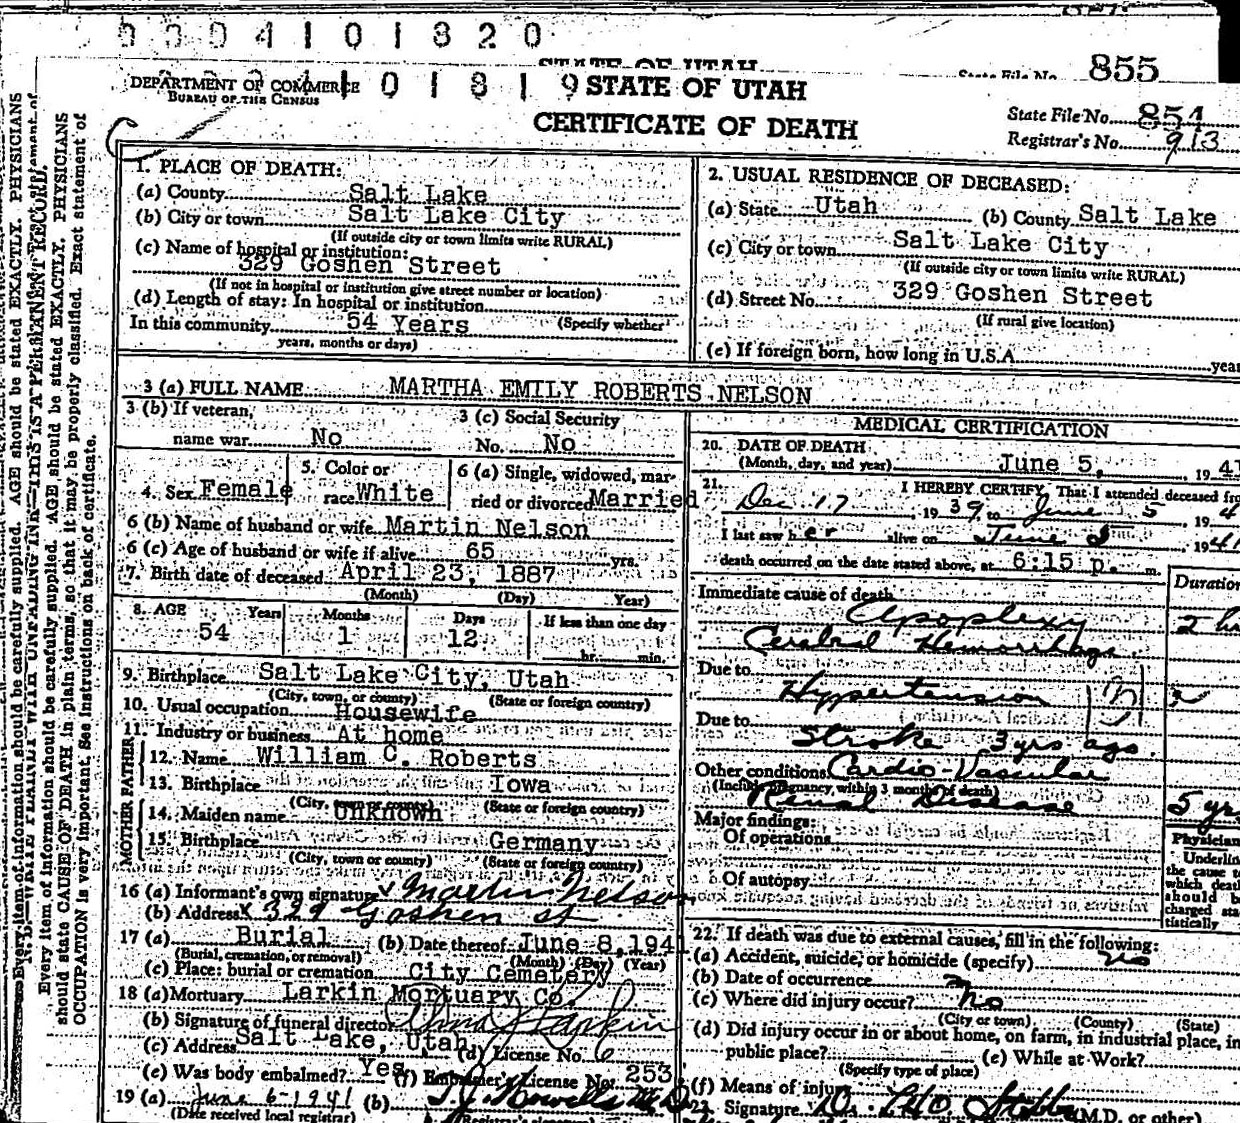 0004101320
STATE OF UTAH
State File No. 855
DEPARTMENT OF COMMERCE
BUREAU OF THE CENSUS
101819
STATE OF UTAH
CERTIFICATE OF DEATH
State File No. 854
Registrar's No. 913
Every item of information should be carefully supplied. AGE should be stated EXACTLY. PHYSICIANS
should state CAUSE OF DEATH in plain terms, so that it may be properly classified. Exact statement of
OCCUPATION is very important. See instructions on back of certificate.
1. PLACE OF DEATH:
(a) County Salt Lake
(b) City or town Salt Lake City
(If outside city or town limits write RURAL)
(c) Name of hospital or institution:
329 Goshen Street
(If not in hospital or institution give street number or location)
(d) Length of stay: In hospital or institution
In this community 54 Years (Specify whether
years, months or days)
2. USUAL RESIDENCE OF DECEASED:
(a) State Utah (b) County Salt Lake
(c) City or town Salt Lake City
(If outside city or town limits write RURAL)
(d) Street No. 329 Goshen Street
(If rural give location)
(e) If foreign born, how long in U.S.A. year
3 (a) FULL NAME MARTHA EMILY ROBERTS NELSON
3 (b) If veteran, name war No
3 (c) Social Security No. No
4. Sex Female
5. Color or race White
6 (a) Single, widowed, married or divorced Married
6 (b) Name of husband or wife Martin Nelson
6 (c) Age of husband or wife if alive 65 yrs.
7. Birth date of deceased April 23, 1887
(Month) (Day) Year)
8. AGE Years Months Days If less than one day
54 1 12 hr. min.
9. Birthplace Salt Lake City, Utah
(City, town, or county) (State or foreign country)
10. Usual occupation Housewife
11. Industry or business At home
FATHER
12. Name William C. Roberts
13. Birthplace Iowa
(City, town or county) (State or foreign country)
MOTHER
14. Maiden name Unknown
15. Birthplace Germany
(City, town or county) (State or foreign country)
16 (a) Informant's own signature Martin Nelson
(b) Address 329 Goshen st
17 (a) Burial (b) Date thereof June 8, 1941
(Burial, cremation, or removal) (Month) (Day) (Year)
(c) Place: burial or cremation City Cemetery
18 (a) Mortuary Larkin Mortuary Co.
(b) Signature of funeral director Larkin
(c) Address Salt Lake, Utah (d) License No. 6
(e) Was body embalmed? Yes (f) Embalmer's License No. 253
19 (a) June 6-1941 (b) M.D.
(Date received local registrar) (Registrar's signature)
MEDICAL CERTIFICATION
20. DATE OF DEATH
(Month, day, and year) June 5, 1941
21. I HEREBY CERTIFY, That I attended deceased from
Dec 17, 1939 to June 5, 194
I last saw her alive on June 5, 1941
death occurred on the date stated above, at 6:15 p. m.
Duration
Immediate cause of death
Apoplexy 2
Cerebral Hemorrhage
Due to
Hypertension
Due to
Stroke 3 yrs ago.
Other conditions Cardio-Vascular
(Include pregnancy within 3 months of death)
Renal Disease 5 yrs
Major findings:
Of operations
Of autopsy
Physician
Underline
the cause to
which death
should be
charged sta
tistically
22. If death was due to external causes, fill in the following:
(a) Accident, suicide, or homicide (specify) no
(b) Date of occurrence
(c) Where did injury occur? no
(City or town) (County) (State)
(d) Did injury occur in or about home, on farm, in industrial place, in
public place? (e) While at Work?
(Specify type of place)
(f) Means of injury
23. Signature (M.D. or other)